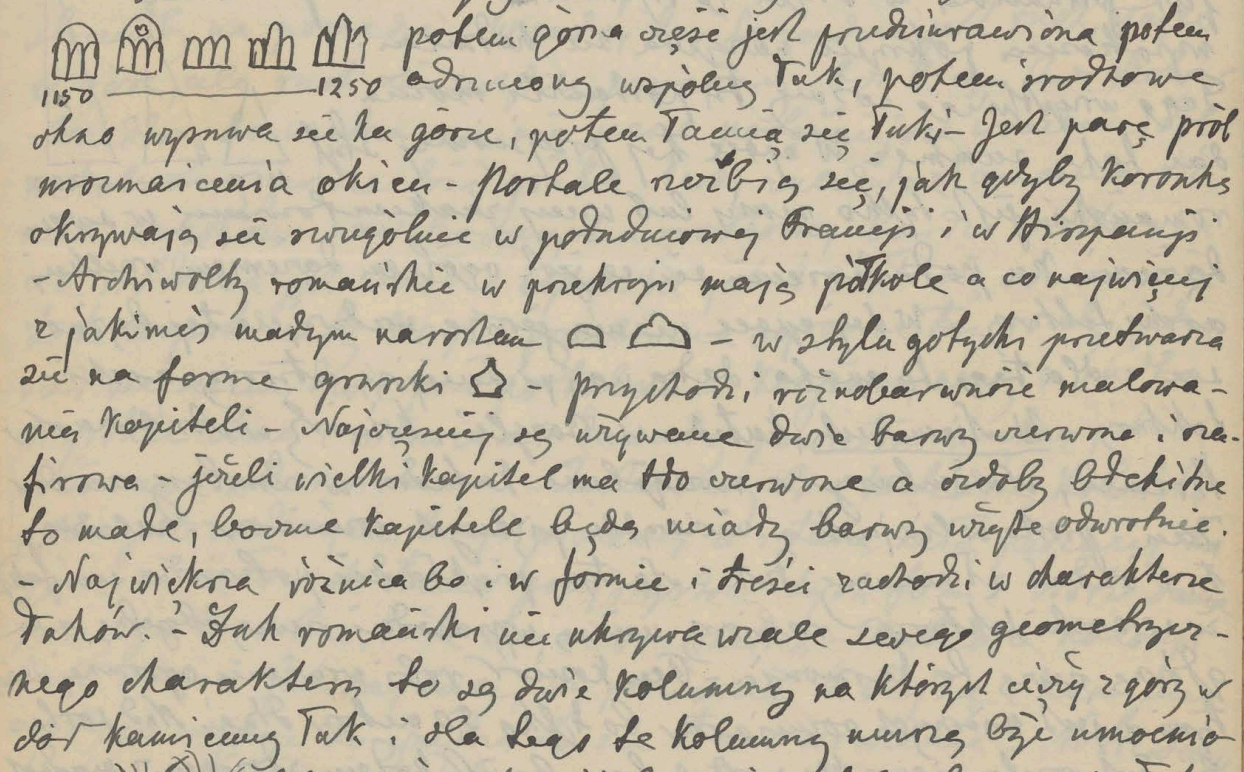 potem górna część jest przedziurawiona potem
1150 1250 odrzucony wspólny łuk, potem środkowe
okno wysuwa się ku górze, potem łamią się łuki – Jest parę prób
urozmaicenia okien – Portale rzeźbią się, jak gdyby koronką
okrywają się szczególnie w południowej Francji i w Hiszpanji
– Archiwolty romańskie w przekroju mają półkole a co najwięcej
z jakimiś małym narostem – w stylu gotycki przetwarza
się na formę gruszki – Przychodzi różnobarwność malowa-
nia kapiteli – Najczęściej są używane dwie barwy czerwona i sza-
firowa – jeżeli wielki kapitel ma tło czerwone a ozdoby błękitne
to małe, boczne kapitele będą miały barwy użyte odwrotnie.
– Największa różnica bo i w formie i treści zachodzi w charakterze
łuków. – Łuk romański nie ukrywa wcale swego geometrycz-
nego charakteru to są dwie kolumny na których cięży z góry w
dół kamienny łuk i dla tego te kolumny muszą być umocnio